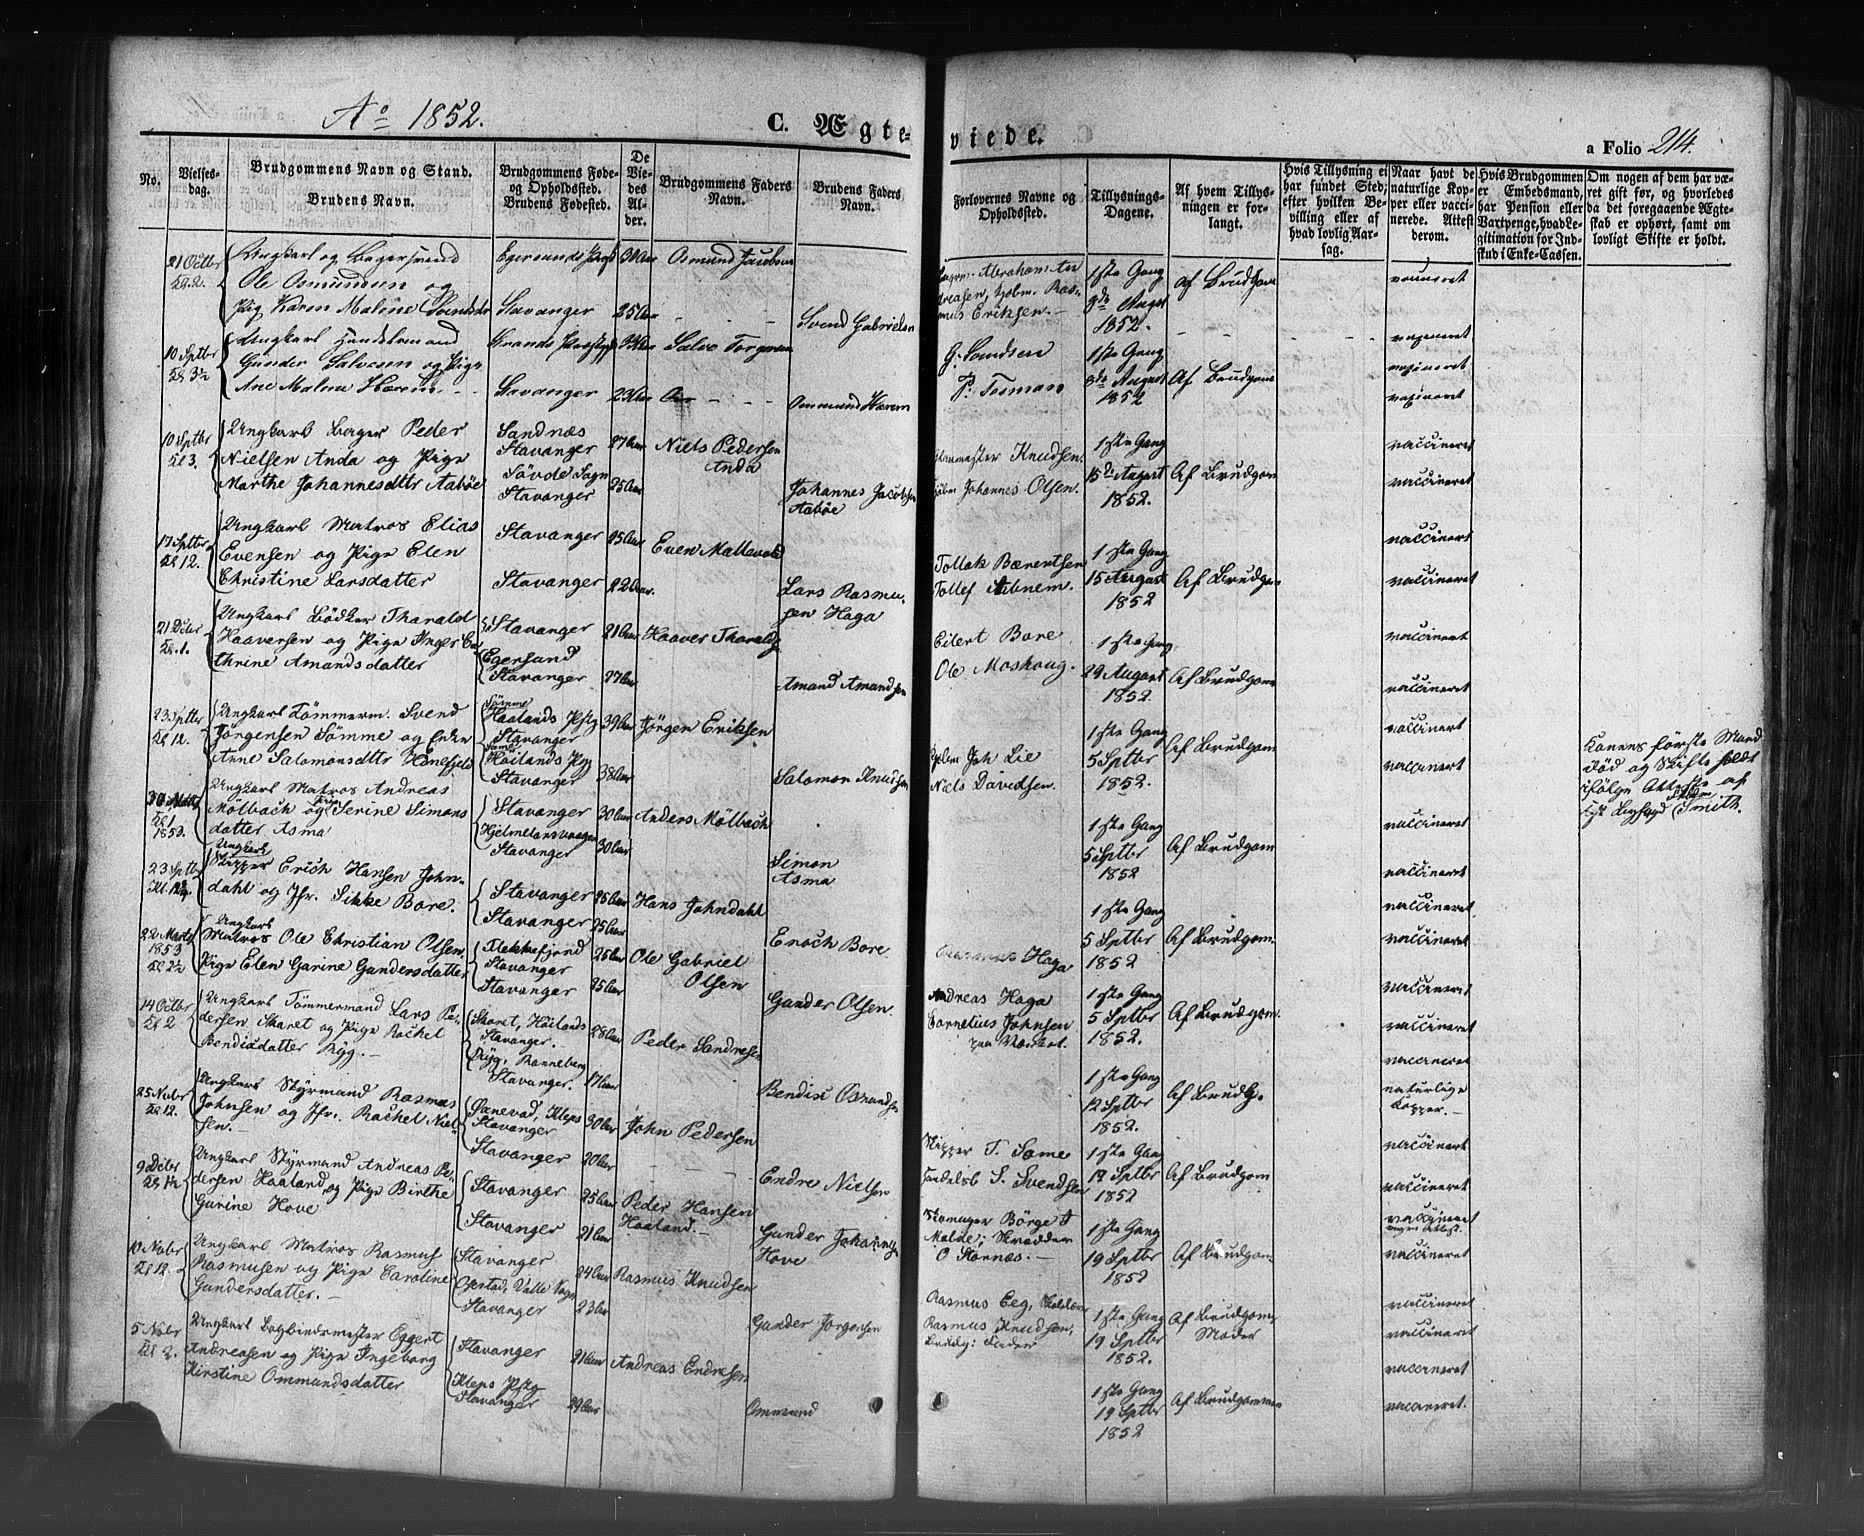 Ao 1852.
C. Ægte-
viede.
a Folio 214.
No.
Vielses-
dag.
Brudgommens Navn og Stand.
Brudens Navn.
Brudgommens Føde-
og Opholdssted.
Brudens Fødested.
De
Vie-
des
Al-
der.
Brudgommens Faders
Navn.
Brudens Faders
Navn.
Forlovernes Navne og
Opholdssted.
Tillysnings-
Dagene.
Af hvem Tillys-
ningen er for-
langt.
Hvis Tillysning ei
har fundet Sted,
efter hvilken Be-
villing eller af
hvad lovlig Aar-
sag.
Naar havt de
naturlige Kop-
per eller vacci-
nerede. Atteste-
derom.
Hvis Brudgommen
er Embedsmand,
har Pension eller
Vartpenge, hvad Le-
gitimation for Ind-
skud i Enke-Cassen.
Om nogen af dem har væ-
ret gift før, og hvorledes
da det foregaaende Ægte-
skab er ophørt, samt om
lovligt Skifte er holdt.
21 Octbr
Kl 2.
Ungkarl og Bagersvend
Ole Osmundsen og
Pig Karen Malene Svendsdtr
Egersunds
Stavanger
25 Aar
Osmund Jacobsen
Svend Gabrielsen
Abraham An
dreasen, Ras-
mus Eriksen. -
1ste Gang
8de August
1852.
Af Brudgom
vaccineret
10 Septbr
Kl 3½
Ungkarl Handelsmand
Gunder Salvesen og Pige
Ane Malene Hærem
Stavanger
23 Aar
Salve Torgersen
Ommund Hærem
G. Samdsen
P. Tesman
1ste Gang
8de August
1852
Af Brudgom
vaccineret
10 Sptbr
Kl 3.
Ungkarl Bager Peder
Nielsen Anda og Pige
Marthe Johannesdttr Aabøe
Sandnæs
Stavanger
Sövde Sogn
Stavanger
27 Aar
25 Aar
Niels Pedersen
Anda
Johannes Jacobsen
Aabøe
Knudsen.
Johannes Olsen.
1ste Gang
15de August
1852.
Af Brudgom
vaccineret
vaccineret
17 Sptbr
Kl 12.
Ungkarl Matros Elias
Evensen og Pige Elen
Christine Larsdatter
Stavanger
Stavanger
25 Aar
22 Aar.
Even Mallevold
Lars Rasmu-
sen Haga
Tollak Bærentsen
Tollef Aabnem.
1ste Gang
15 August
1852
Af Brudgom
vaccineret
vaccineret
21 Dcbr
Kl. 1.
Ungkarl Bödker Tharald
Haaversen og Pige Inger Ca
thrine Amandsdatter
Stavanger
Egersund
Stavanger
21 Aar
27 Aar
Haaver Tharalds
Amand Amandsen
Eilert Bore
Ole Moshoug.
1ste Gang
29 August
1852.
Af Brudgom
vaccineret
vaccineret
23 Sptbr
Kl 12.
Ungkarl Tömmerm. Svend
Jörgensen Sömme og Enken
Anne Salomonsdttr Hönefjeld
Sömme
Haalands Pstg
Stavanger
Same
Höilands Pstg
Stavanger
39 Aar
38 Aar
Jörgen Eriksen
Salomon Knudsen
Joh Lie
Niels Davidsen.
1ste Gang
5 Sptbr
1852.
Af Brudgom
vaccineret
vaccineret
Konens første Mand
död og Skifte holdt
ifølge Attest af
Smith.
Kl 1
1853.
Ungkarl Matros Andreas
Mölbach og Pige Serine Simons
datter Asma
Stavanger
Hjelmelandsvaagen
Stavanger
30 Aar
30 Aar
Anders Mölbach
Simon
Asma
1ste Gang
5 Sptbr
1852
Af Brudgom
vaccineret
vaccineret
23 Sptbr
Ungkarl
Skipper Erich Hansen John-
dahl og Jfr. Sikke Bore.
Stavanger
Stavanger
25 Aar
25 Aar
Hans Johndahl
Enoch Bore
Rasmus Haga
1ste Gang
5 Sptbr
1852
Af Brudgom.
vaccineret
vaccineret
22 Marts
1853
Kl 2½
Ungkarl
Matros Ole Christian Olsen.
Pige Elen Garine Gundersdatter
Flekkefjord
Stavanger
Stavanger
25 Aar
25 Aar
Ole Gabriel
Olsen
Gunder Olsen.
Andreas Haga
Cornelius Johnsen
1ste Gang
5 Sptbr
1852.
Af Brudgom.
vaccineret
vaccineret
14 Octbr
Kl 2
Ungkarl Tömmermand Lars Pe-
dersen Skaret og Pige Rachel
Bendixdatter Ryg. -
Skaret, Höilands
Stavanger.
Ryg, Renneberg
Stavanger.
28 Aar
17 Aar
Peder Sandresen
Bendix Osmundsen
1ste Gang
12 Sptbr
1852.
Af Brudg.
vaccineret
naturlige
Kopper. -
25 Nvbr
Kl 12.
Ungkarl Styrmand Rasmus
Johnsen og Jfr. Rachel Niel-
sen. -
Kleps
Stavanger
Stavanger
30 Aar
20 Aar
John Pedersen
Endre Nielsen
Skipper T. Same
S. Svendsen
1ste Gang
19 Sptbr
1852
Af Brudgom
vaccineret
vaccineret
9 Dcbr
Kl 1½
Ungkarl Styrmand Andreas Pe-
dersen Haaland og Pige Birthe
Gurine Hove
Stavanger
Stavanger
25 Aar
21 Aar
Peder Hansen
Haaland. -
Gunder Johannesen
Hove
Skomager Börge T
Malde; Skrædder
O Stornæs. -
1ste Gang
19 Sptbr
1852
Af Brudgom
vaccineret
vaccineret
10 Nvbr
Kl 12.
Ungkarl Matros Rasmus
Rasmusen og Pige Caroline
Gundersdatter. -
Stavanger
Valle Sogn
Stavanger
24 Aar
23 Aar
Rasmus Knudsen
Gunder Jörgensen
Rasmus Eeg,
Rasmus Knudsen,
Brudg: Fader
1ste Gang
19 Sptbr
1852.
Af Brudgom
Moder
vaccineret
vaccineret
5 Nvbr
Kl 2.
Ungkarl Bogbindermester Eggert
Andreasen og Pige Ingeborg
Kirstine Ommundsdatter
Stavanger
Kleps Pstg
Stavanger
21 Aar
29 Aar
Andreas Endresen
Ommund
1ste Gang
19 Sptbr
1852
Af Brudgommen
vaccineret
vaccineret.